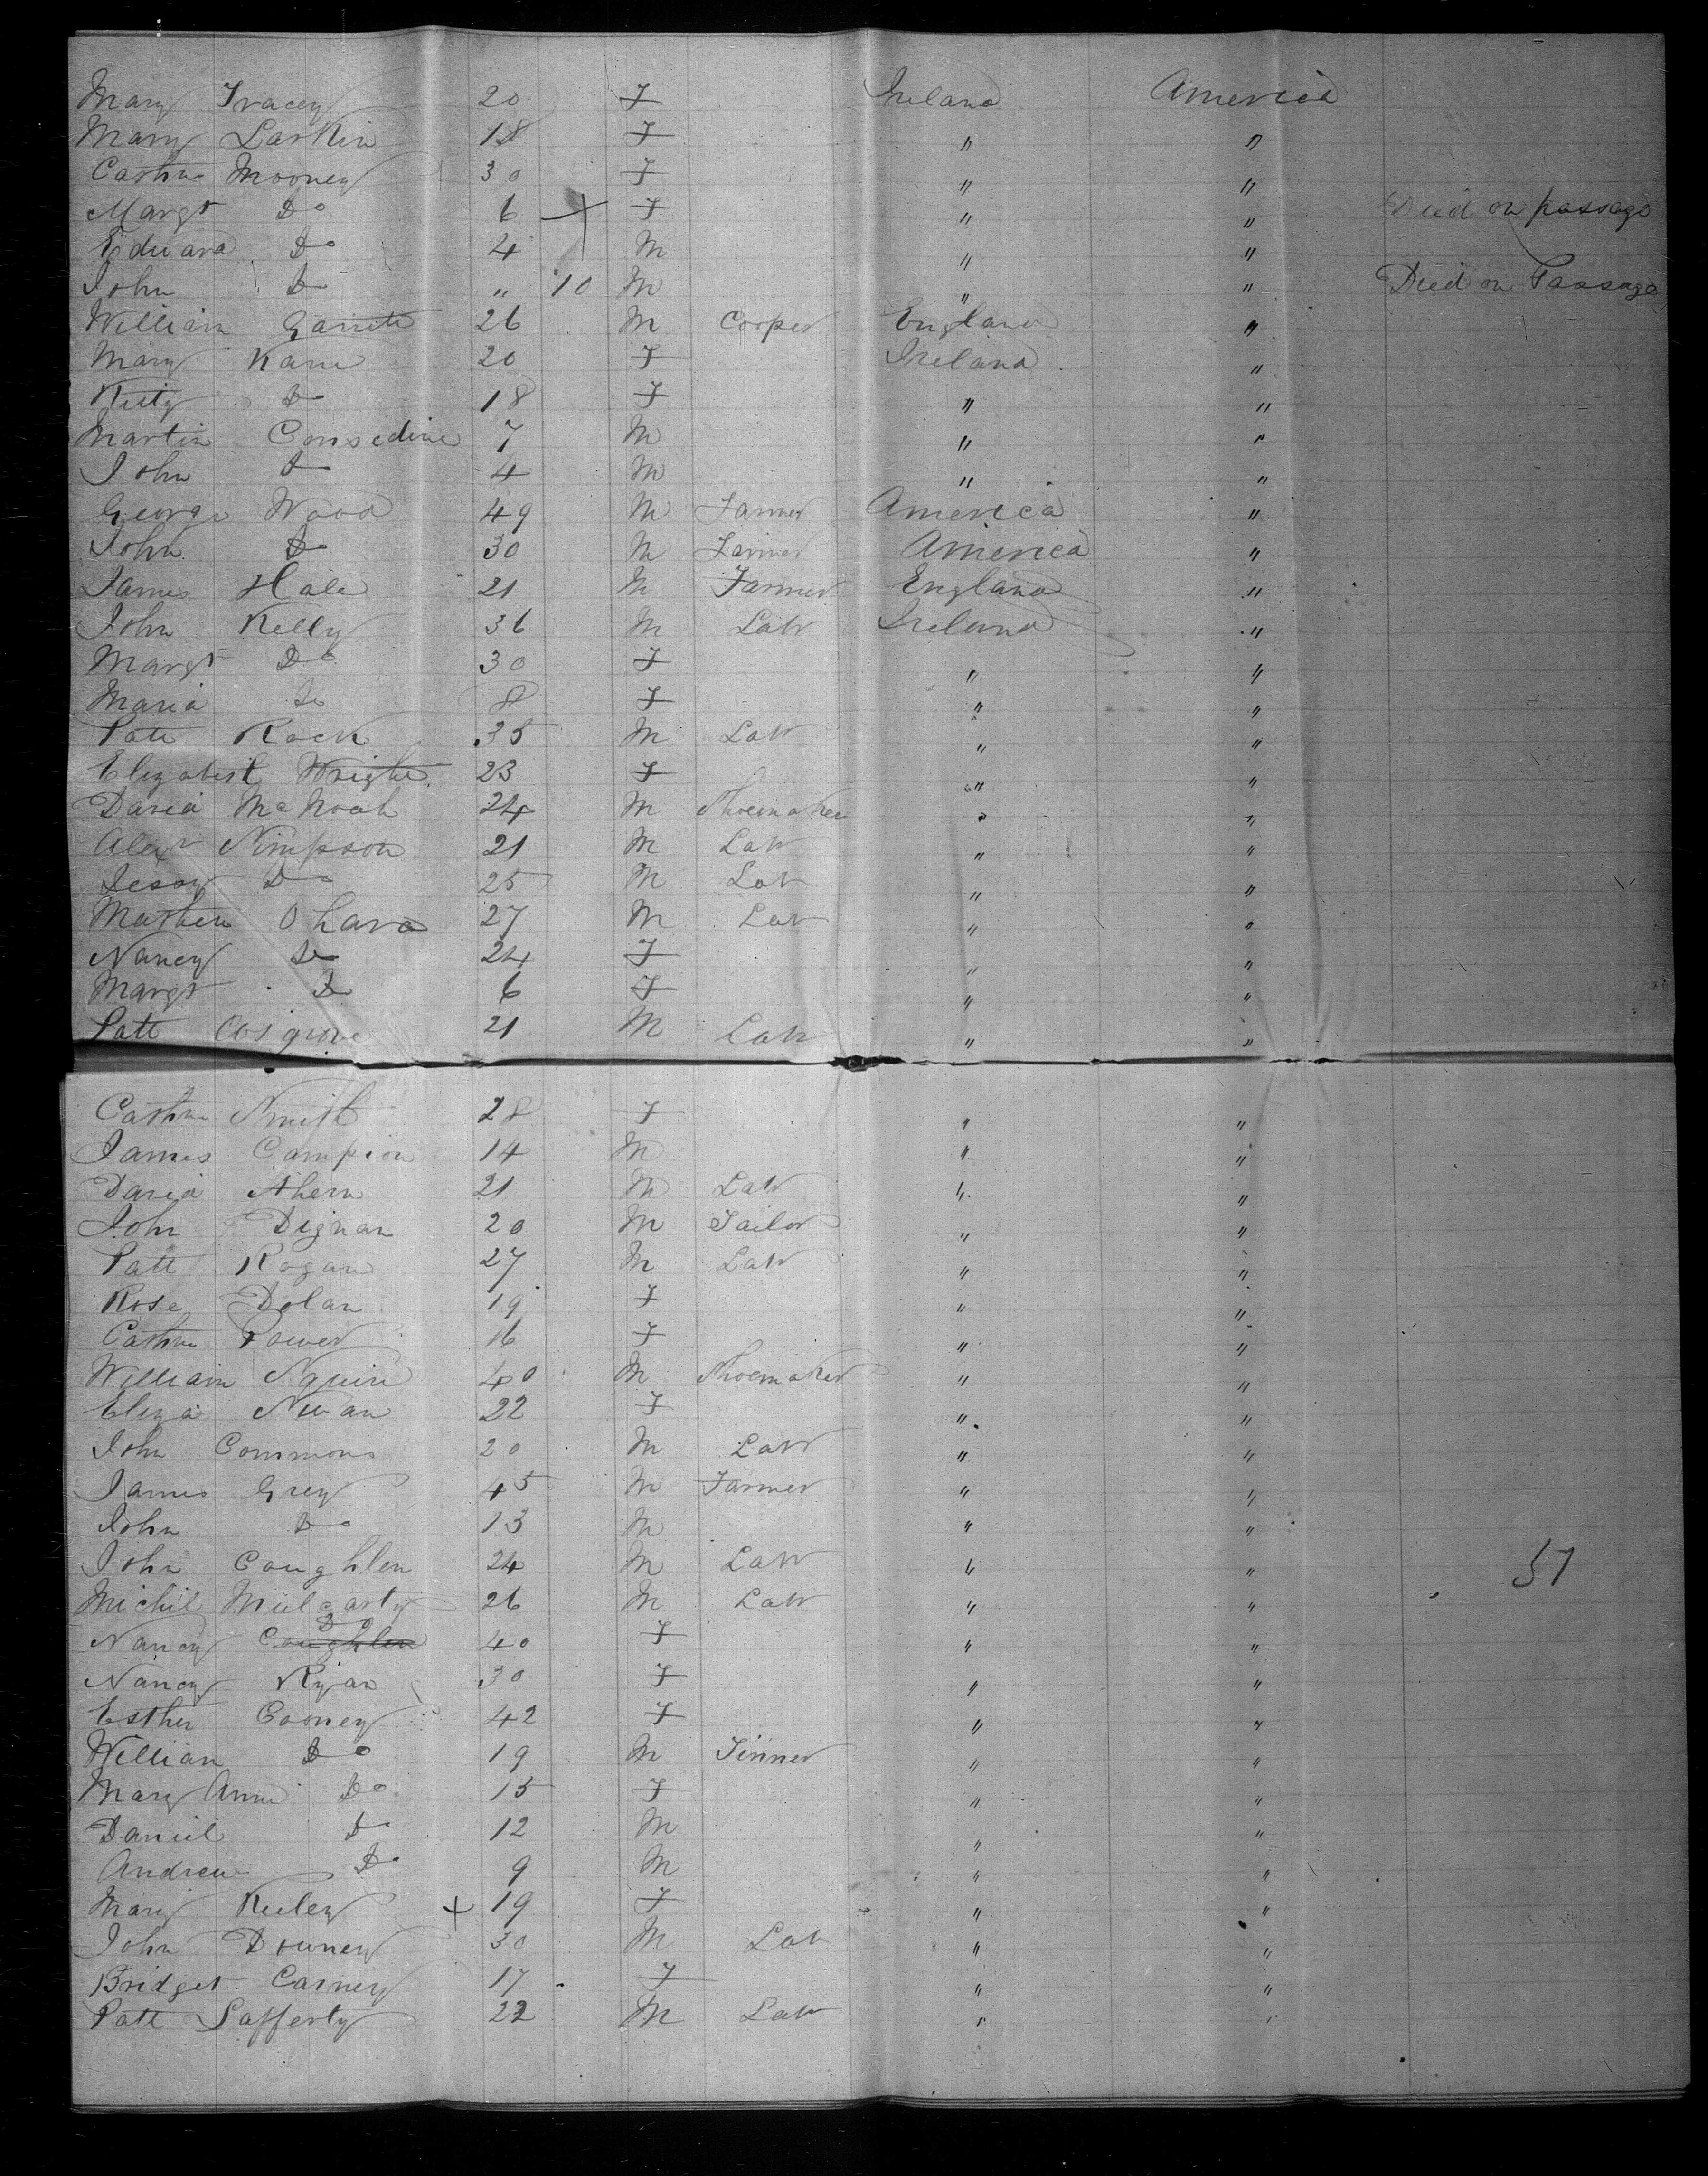 Mary Tracey 20 F Ireland America
Mary Larkin 18 F " "
Cathne Mooney 30 F " "
Margt Do 6 F " " Died on passage
Edward Do 4 M " "
John Do " 10 M " " Died on Passage
William Garrett 26 M Cooper England "
Mary Kane 20 F Ireland "
Kitty Do 18 F " "
Martin Considine 7 M " "
John Do 4 M " "
George Wood 49 M Farmer America "
John Do 30 M Farmer America "
James Hale 21 M Farmer England "
John Kelly 36 M Labr Ireland "
Margt Do 30 F " "
Maria Do 8 F " "
Patt Rock 35 M Labr " "
Elizabeth Wright 23 F " "
David 24 M Shoemaker " "
Alexr Simpson 21 M Labr " "
Jessy Do 25 M Labr " "
Mathew Ohara 27 M Labr " "
Nancy Do 24 F " "
Margt Do 6 F " "
Patt Cosgrove 21 M Labr " "
Cathne Smith 28 F " "
James Campion 14 M " "
David Ahern 21 M Labr " "
John Dignan 20 M Tailor " "
Patt Rogan 27 M Labr " "
Rose Dolan 19 F " "
Cathne Power 16 F " "
William Squire 40 M Shoemaker " "
Eliza Swan 22 F " "
John Commons 20 M Labr " "
James Grey 45 M Farmer " "
John Do 13 M " "
John Coughlen 24 M Labr " " 51
Michil Mulcarty 26 M Labr " "
Nancy Coughlen Do 40 F " "
Nancy Ryan 30 F " "
Esther Cooney 42 F " "
William Do 19 M Tinner " "
Mary Anne Do 15 F " "
Daniel Do 12 M " "
Andrew Do 9 M " "
Mary + 19 F " "
John Downey 30 M Labr " "
Bridget Carney 17 F " "
Patt Lafferty 22 M Labr " "